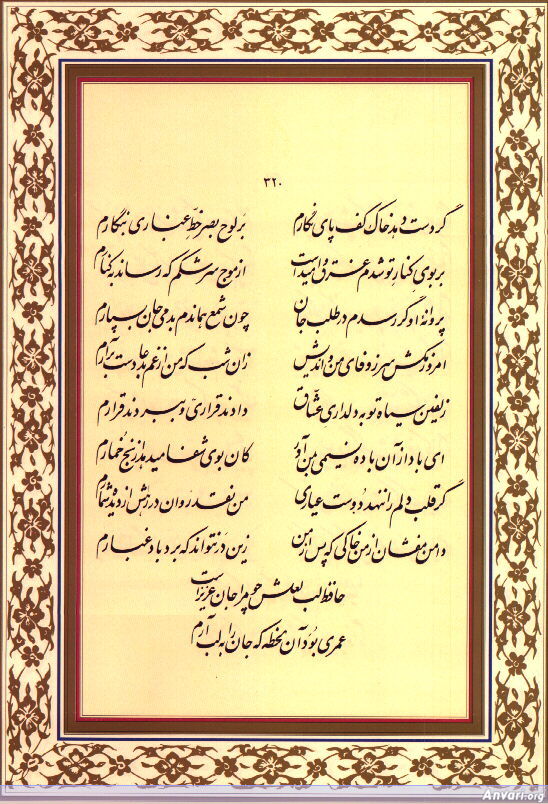 ۳۲۰
گر دست دهد خاک کف پای نگارم بر لوح بصر خطّ غباری بنگارم
بر بوی کنار تو شدم غرق و امید است از موج سرشکم که رساند بکنارم
پروانهٔ او گر رسدم در طلب جان چون شمع هماندم بدمی جان بسپارم
امروز مکش سر ز وفای من و اندیش زان شب که من از غم بدعا دست برآرم
زلفین سیاه تو به دلداری عشّاق دادند قراری و ببردند قرارم
ای باد از آن باده نسیمی بمن آور کان بوی شفا میدهد از رنج خمارم
گر قلب دلم را ننهد دوست عیاری من نقد روان در رهش از دیده شمارم
دامن مفشان از من خاکی که پس از من زین در نتواند که برد باد غبارم
حافظ لب لعلش چو مرا جان عزیز است
عمری بُود آن لحظه که جان را به لب آرم
Anvari.org